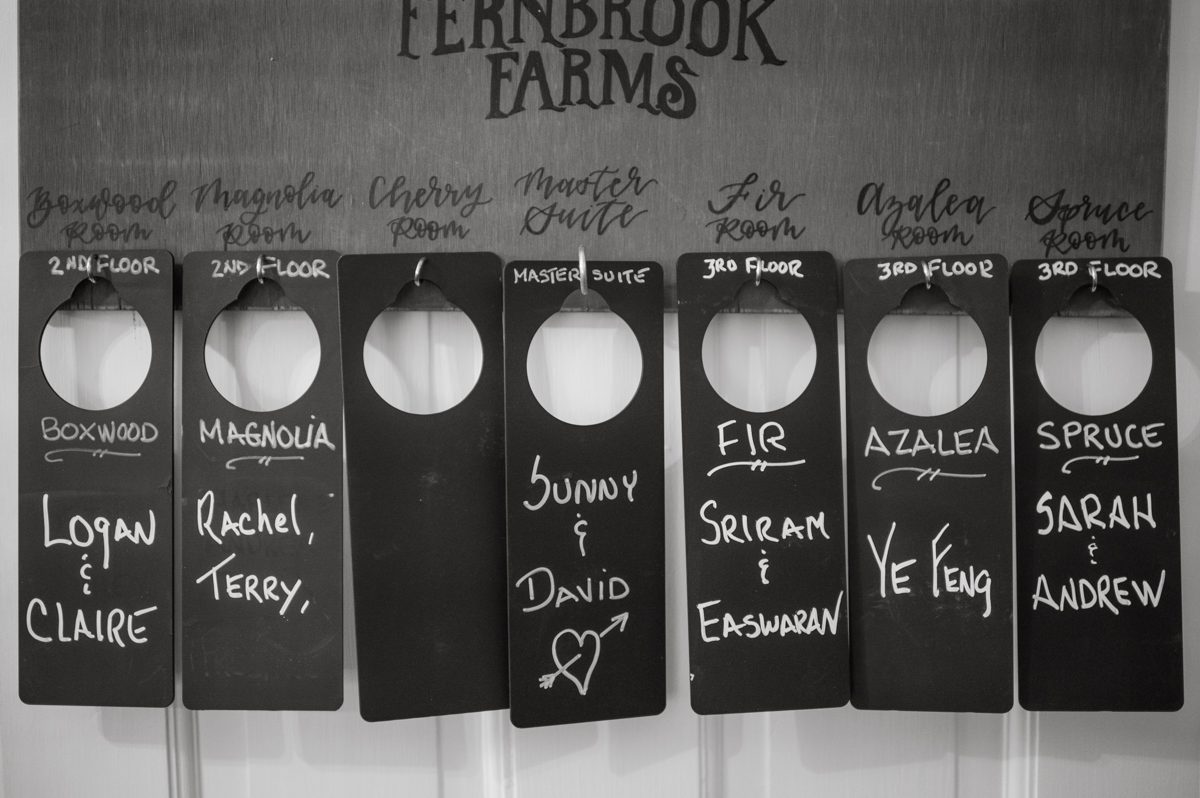 FERNBROOK
FARMS
Boxwood
Room
Magnolia
Room
Cherry
Room
Master
Suite
Fir
Room
Azalea
Room
Spruce
Room
2ND FLOOR
BOXWOOD
LOgAN
&
CLAIRE
2ND FLOOR
MAGNOLIA
Rachel,
TERRY,
MASTER SUITE
SUNNY
&
DAVID
3RD FLOOR
FIR
SRIRAM
&
EASWARAN
3RD FLOOR
AZALEA
YE FENg
3RD FLOOR
SPRUCE
SARAH
&
ANDREW